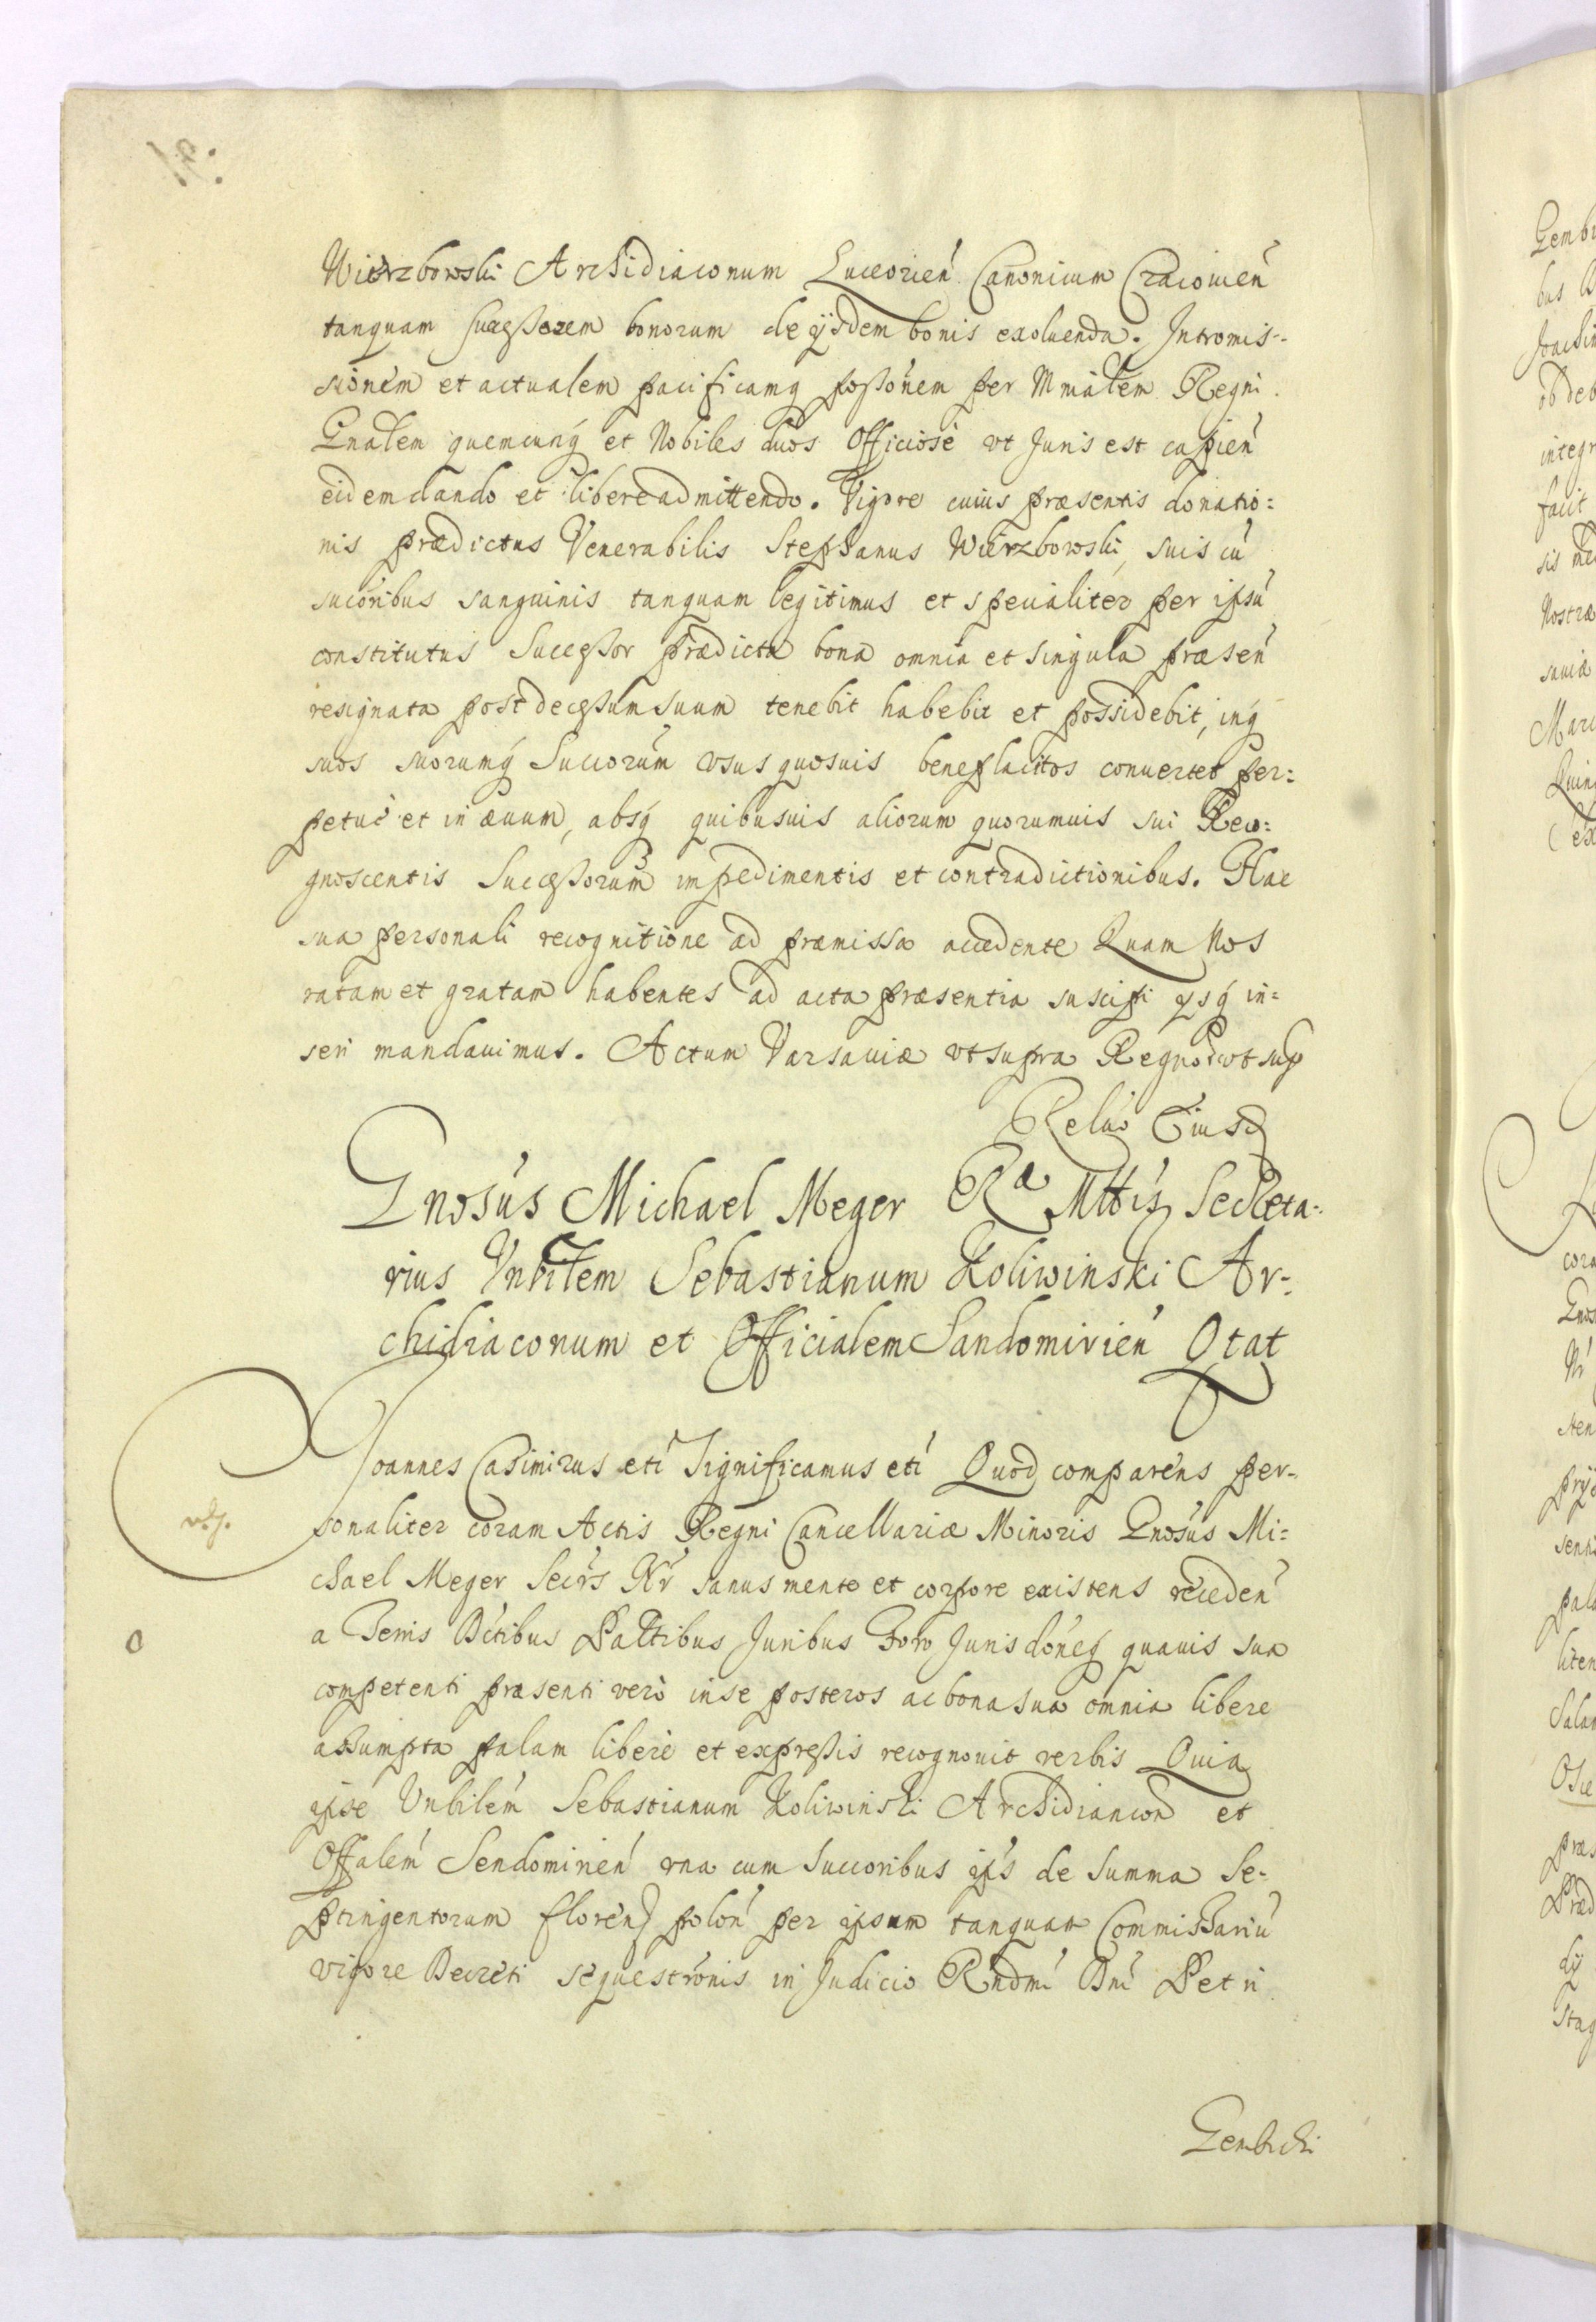 Wierzbowski Archidiaconum Luceorien Canonicum Cracouien
tanquam successorem bonorum de ijsdem bonis exoluenda. Intromis-
sionem et actualem pacificamq possonem per Mnialem Regni
Gnalem quemcunq et Nobiles duos Officiose vt Juris est capien
eidem dando et libere admittendo. Vigore cuius præsentis donatio=
nis prædictus Venerabilis Stephanus Wierzbowski, suis cu
sucoribus sanguinis tanquam legitimus et specialiter per ipsu
constitutus Successor prædicta bona omnia et singula præsen
resignata post decessum suum tenebit habebit et possidebit, inq
suos suorumq Succorum vsus quosuis beneplacitos conuertet per=
petuè et in æuum, absq quibusuis aliorum quorumuis sui Reco=
gnoscentis Successorum impedimentis et contradictionibus. Hac
sua personali recognitione ad præmissa accedente Quam Nos
ratam et gratam habentes ad acta præsentia suscipi ysq in=
seri mandauimus. Actum Varsauiæ vt supra Regnorwt sup
Relao Eiusd
Gnosus Michael Meger Ræ Mttis Secreta-
rius Vnbilem Sebastianum Koliwinski Ar-
chidiaconum et Officialem Sandomirien Qtat
Joannes Casimirus eti Significamus eti Quod comparens per-
sonaliter coram Actis Regni Cancellariæ Minoris Gnosus Mi=
chael Meger Secrs Nr sanus mente et corpore existens receden
a Terris Dctibus Palttibus Juribus Foro Jurisdoneq quauis sua
competenti præsenti verò in se posteros ac bona sua omnia libere
assumpta palam liberè et expressis recognouit verbis Quia
ipse Vnbilem Sebastianum Koliwinski Archidiancon et
Offalem Sendomirien vna cum Succoribus ips de Summa Se-
ptingentorum floren polon per ipsum tanquam Commissariu
vigore Decreti sequestronis in Judicio Rndmi Dni Petri
Gembicki